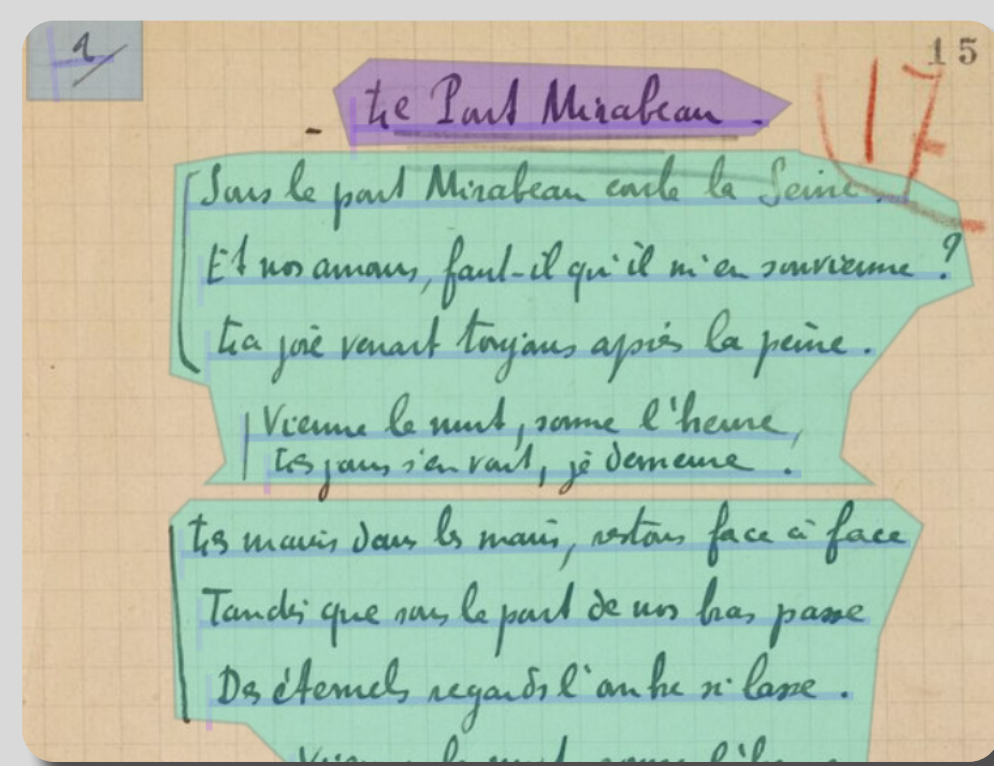 15
17
Le Pont Mirabeau.
Sous le pont Mirabeau coule la Seine.
Et nos amours, faut-il qu'il m'en souvienne ?
La joie venait toujours après la peine.
Vienne la nuit, sonne l'heure,
Les jours s'en vont, je demeure.
Les mains dans les mains, restons face à face
Tandis que sous le pont de nos bras passe
Des éternels regards l'onde si lasse.